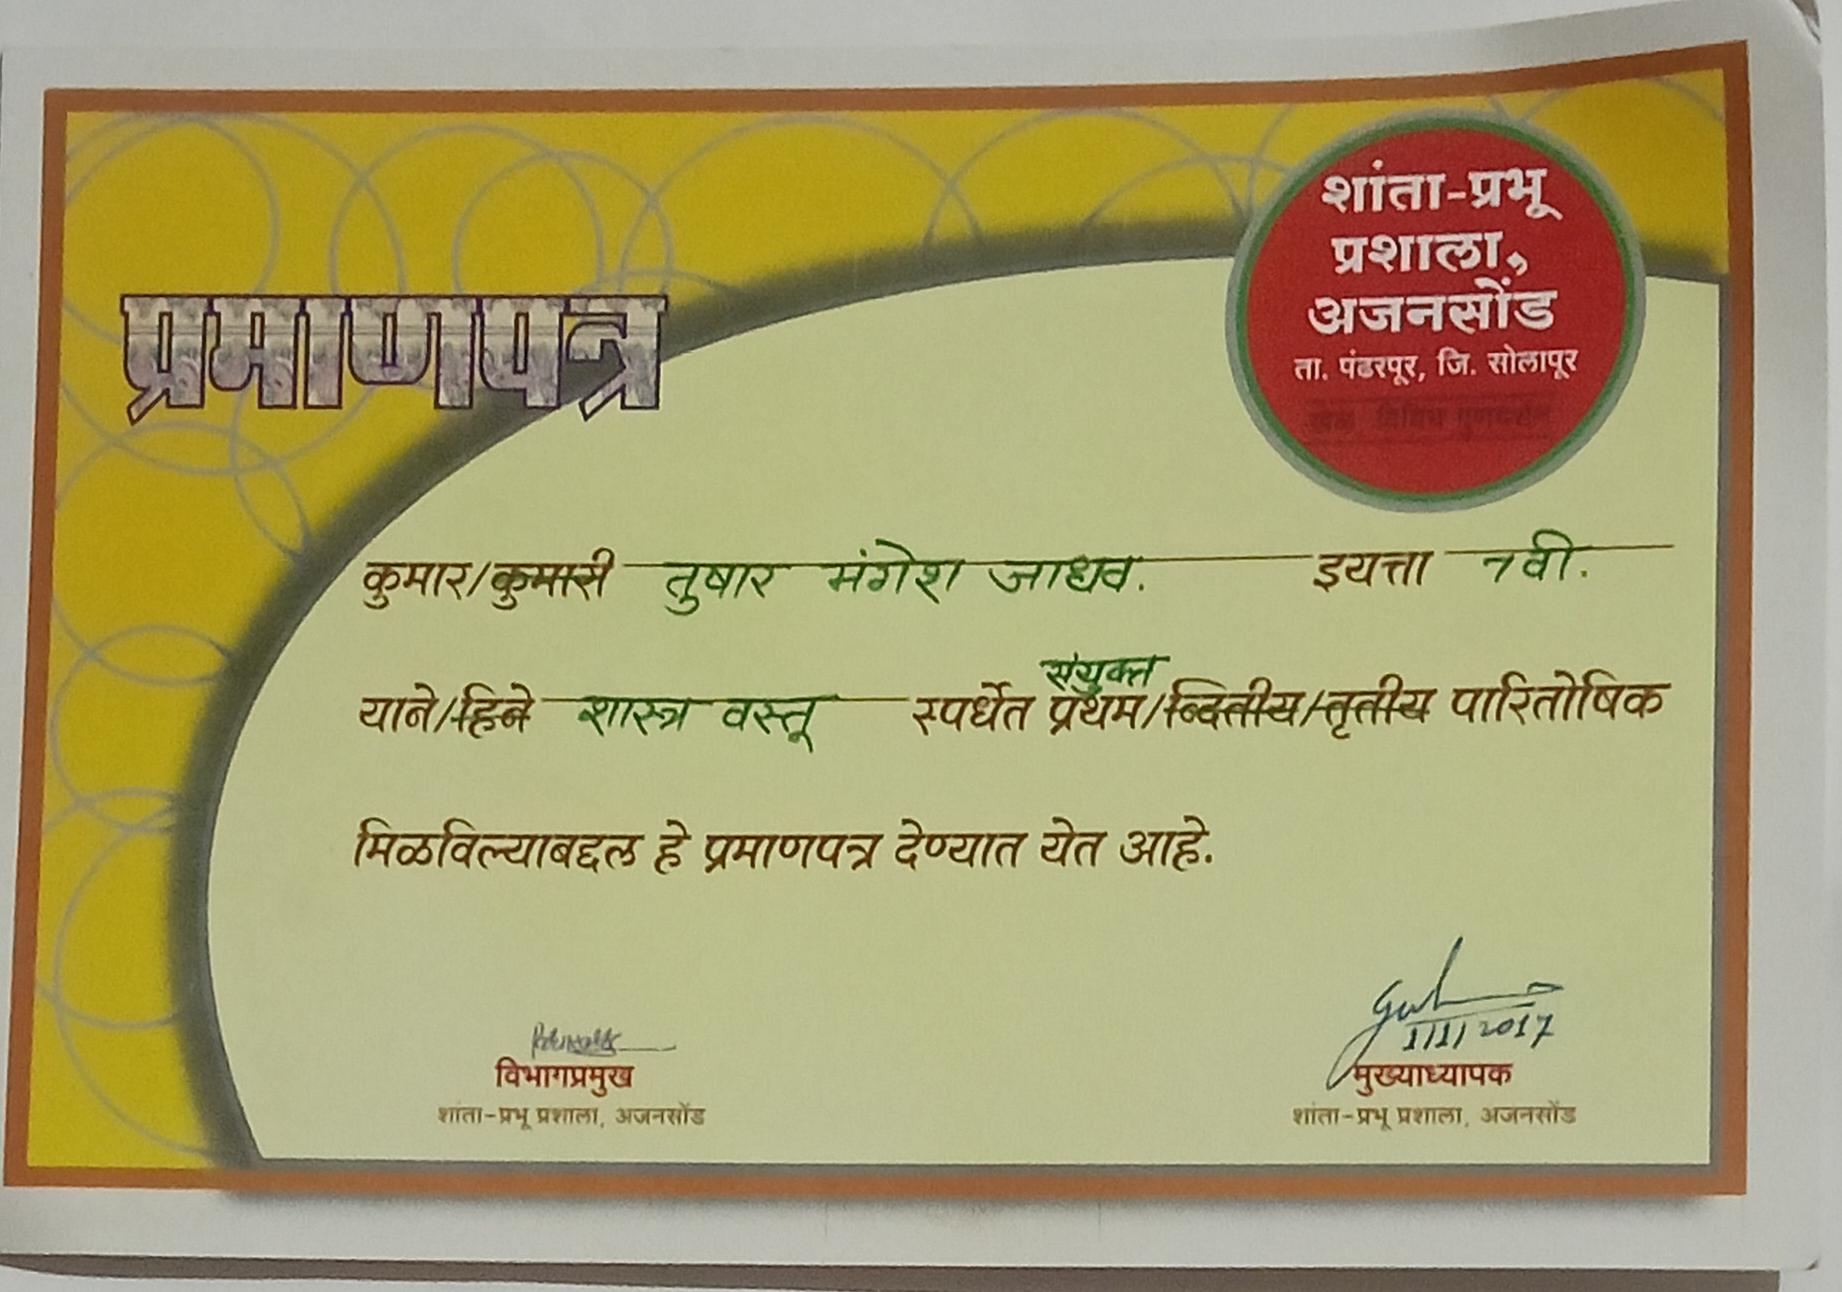 प्रमाणपत्र
शांता-प्रभू
प्रशाला,
अजनसोंड
ता. पंढरपूर, जि. सोलापूर
कुमार/कुमारी तुषार मंगेश जाधव. इयत्ता ७वी.
संयुक्त
याने/हिने शास्त्र वस्तू स्पर्धेत प्रथम/व्दितीय/तृतीय पारितोषिक
मिळविल्याबद्दल हे प्रमाणपत्र देण्यात येत आहे.
1/1/2017
विभागप्रमुख
शांता-प्रभू प्रशाला, अजनसोंड
मुख्याध्यापक
शांता-प्रभू प्रशाला, अजनसोंड